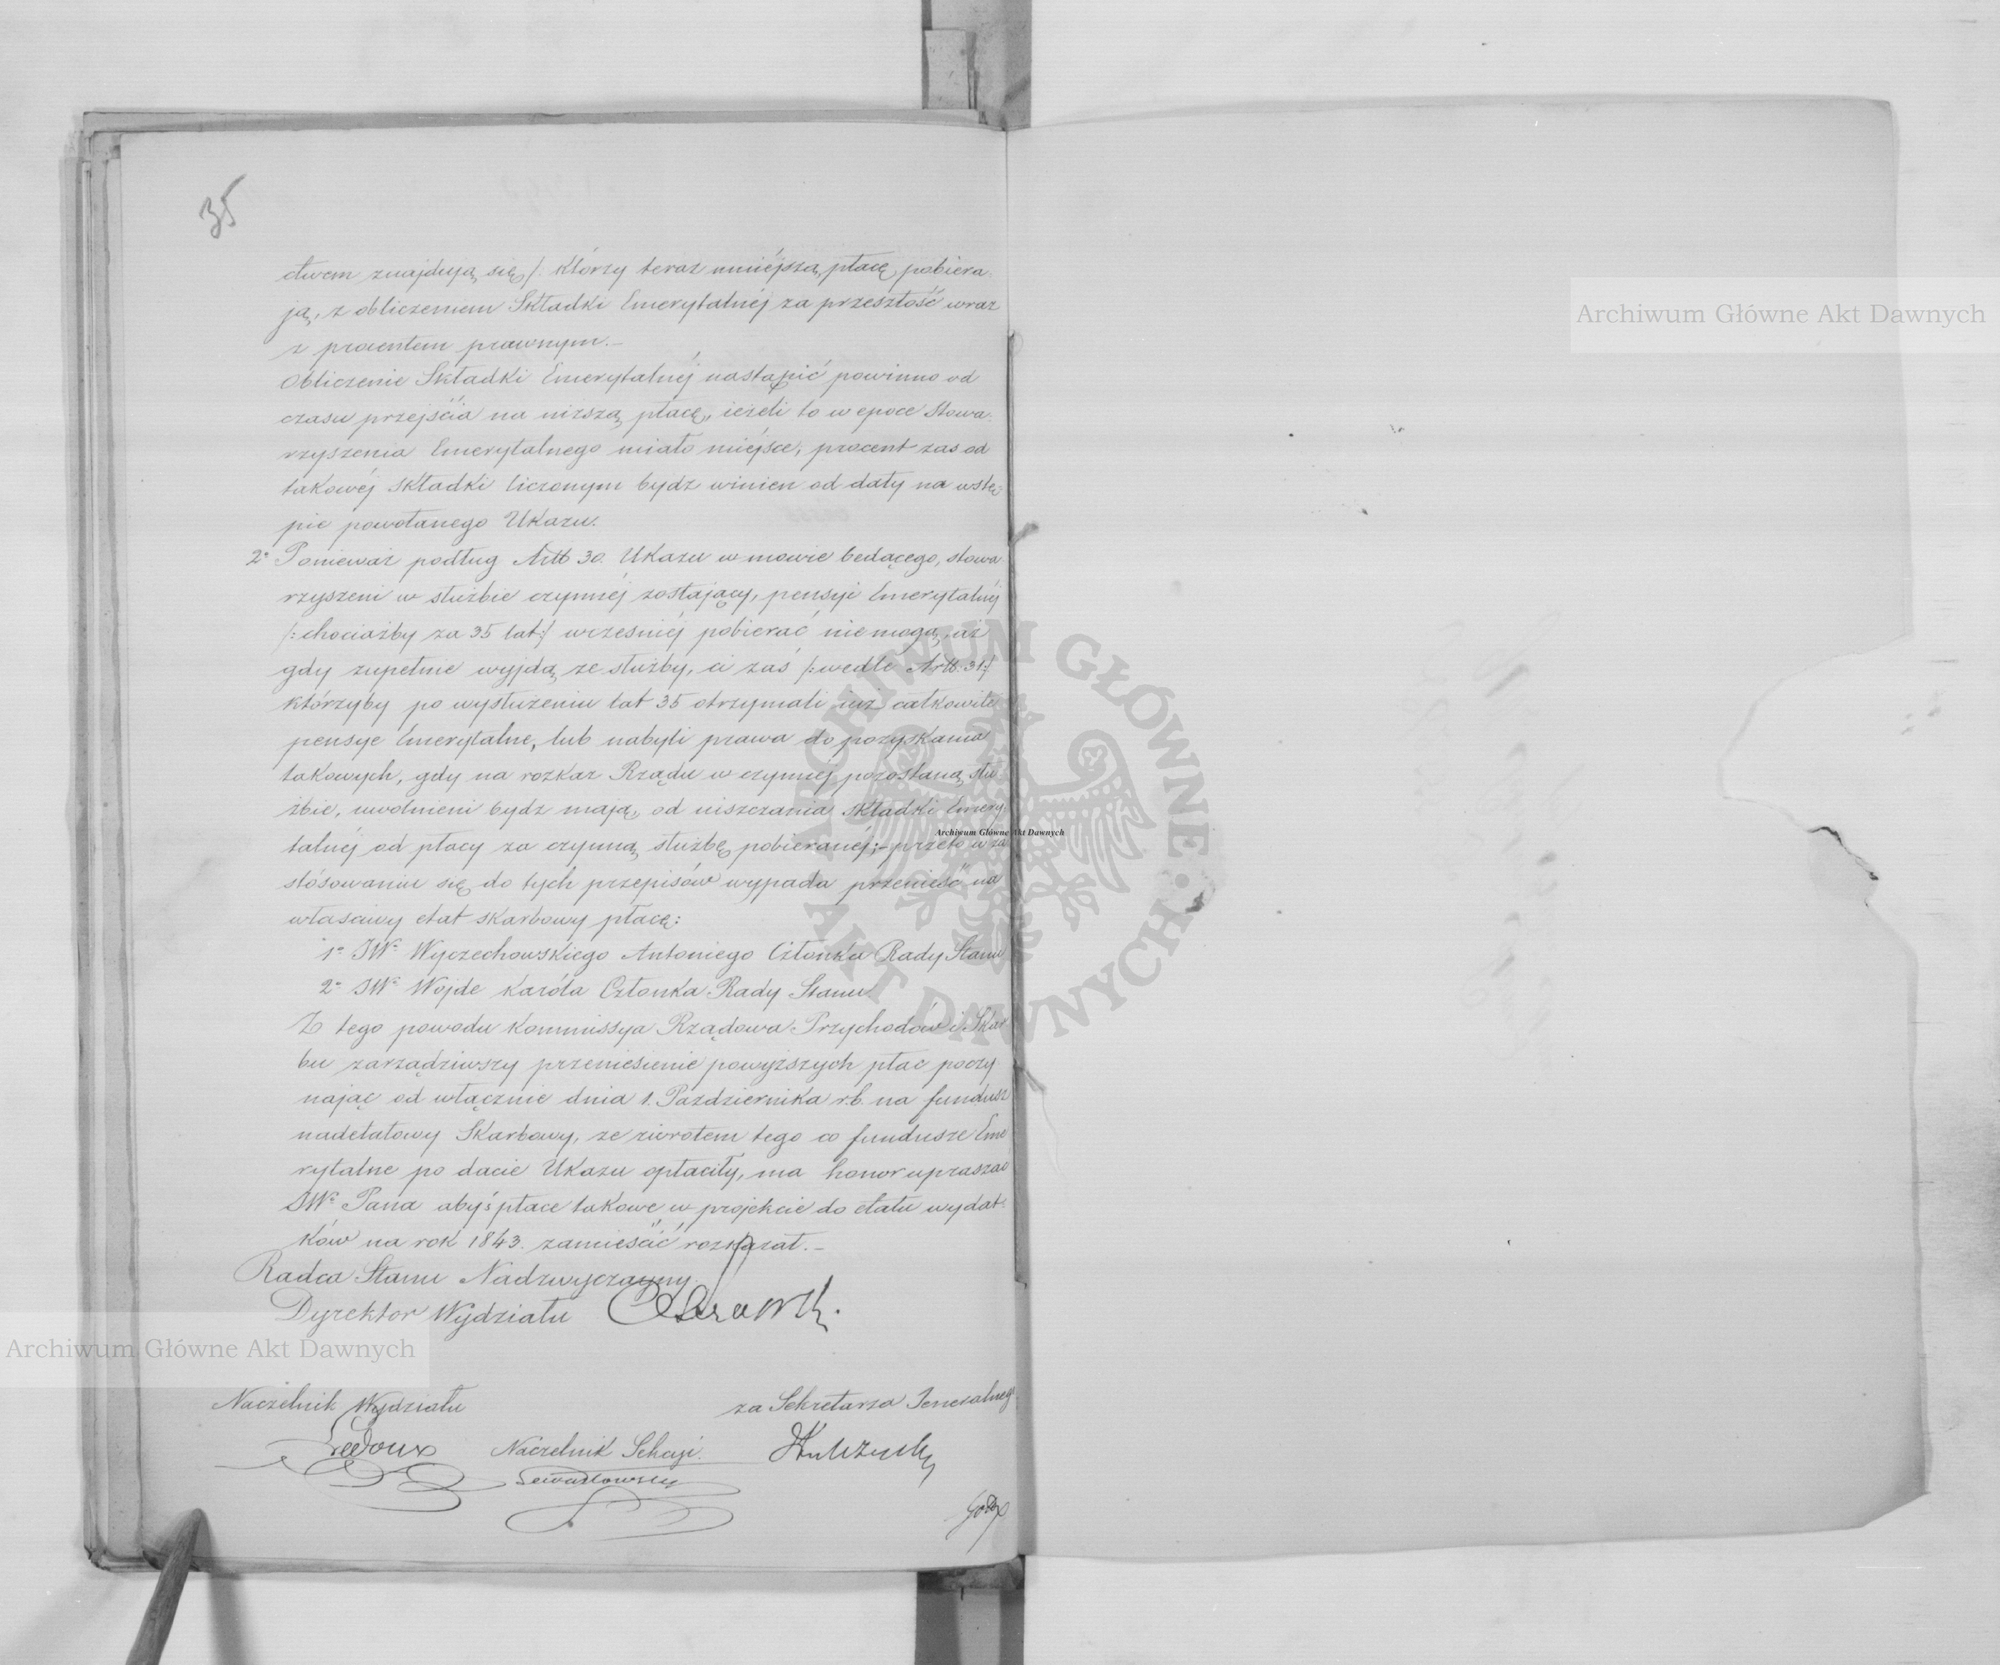 35
ctwem znajdują się /: którzy teraz mniejszą płacę pobiera
ją, z obliczeniem Składki Emerytalnéj za przeszłość wraz
z procentem prawnym.—
Obliczenie Składki Emerytalnéj nastąpić powinno od
czasu przejścia na niższą płacę, ieżeli to w epoce Stowa
rzyszenia Emerytalnego miało miejsce, procent zas od
takowéj składki liczonym bydz winien od daty na wstę
pie powołanego Ukazu.
2° Ponieważ podług Artt 30. Ukazu w mowie będącego, stowa
rzyszeni w służbie czynnéj zostający, pensyi Emerytalnéj
/: chociażby za 35 lat :/ wcześniéj pobierać nie mogą, aż
gdy zupełnie wyjdą ze służby, ci zaś /: wedle Artt. 31 :/
którzyby po wysłużeniu lat 35 otrzymali iuż całkowite
pensye Emerytalne, lub nabyli prawa do pozyskania
takowych, gdy na rozkaz Rządu w czynnéj pozostaną słu
żbie, uwolnieni bydz mają, od uiszczania składki Emery
talnéj od płacy za czynną służbę pobieranéj;— przeto w za
stósowaniu się do tych przepisów wypada przenieść na
właściwy etat skarbowy płacę:
1° JW° Wyczechowskiego Antoniego Członka Rady Stanu
2° JW° Wojde Karóla Członka Rady Stanu.
Z tego powodu Kommissya Rządowa Przychodów i Skar
bu zarządziwszy przeniesienie powyższych płac poczy
nając od włącznie dnia 1. Pazdziernika r.b. na fundusz
nadetatowy Skarbowy, ze zwrotem tego co fundusze Eme
rytalne po dacie Ukazu opłaciły, ma honor upraszać
JW° Pana abyś płace takowe w projekcie do etatu wydat
ków na rok 1843. zamieścić rozkazał.—
Radca Stanu Nadzwyczayny
Dyrektor Wydziału
Naczelnik Wydziału
za Sekretarza Jeneralnego
Ledoux
Naczelnik Sekcyi
Archiwum Główne Akt Dawnych
Archiwum Główne Akt Dawnych
Archiwum Główne Akt Dawnych
ARCHIWUM GŁÓWNE AKT DAWNYCH